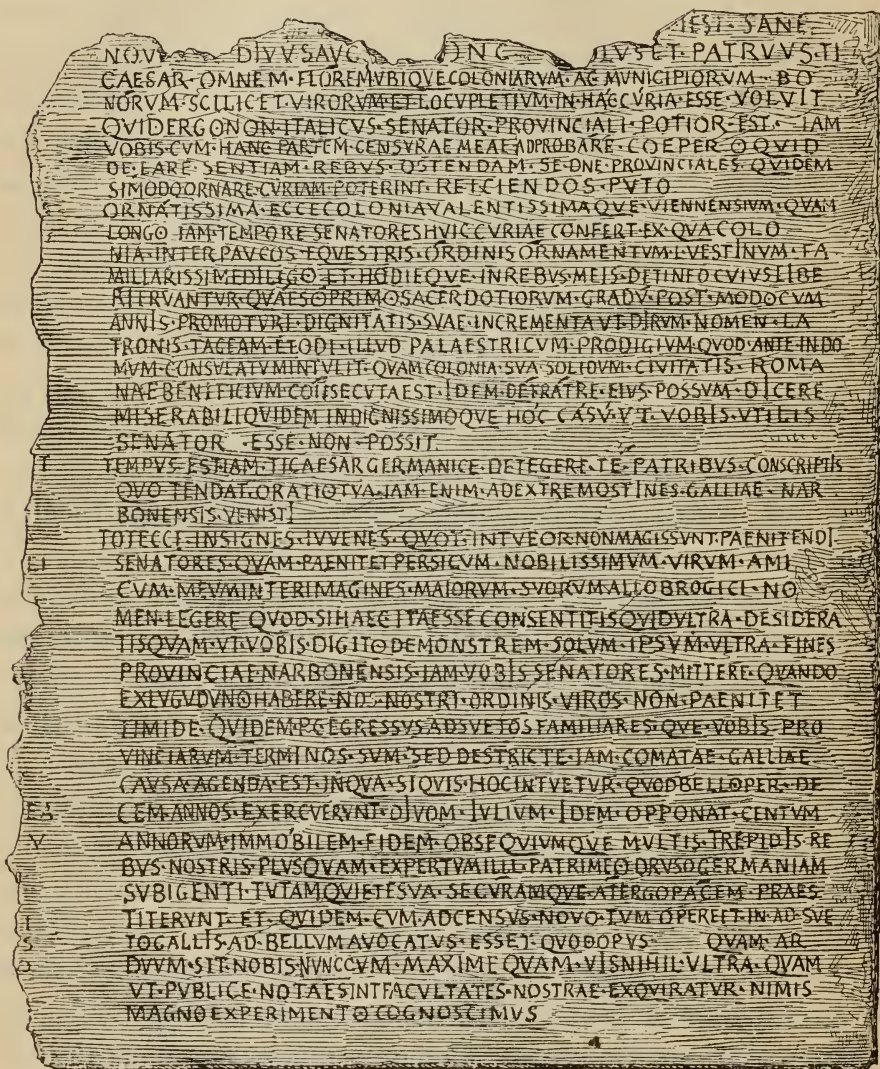 IEST· SANE
NOVV DIVVSAVG ONC LVSET· PATRVVS·TI
CAESAR·OMNEM·FLOREMVBIQVECOLONIARVM·AC MVNICIPIORVM··BO
NORVM·SCILICET·VIRORVM·ET·LOCVPLETIVM·IN·HACCVRIA·ESSE·VOLVIT
QVIDERGONON·ITALICVS·SENATOR·PROVINCIALI·POTIOR·EST· IAM
VOBIS·CVM·HANC·PARTEM·CENSVRAEMEAE·ADPROBARE·COEPERO QVID
DE·EARE·SENTIAM·REBVS·OSTENDAM·SEDNE·PROVINCIALES·QVIDEM
SIMODOORNARE·CVRIAM·POTERINT·REICIENDOS·PVTO
ORNATISSIMA·ECCECOLONIAVALENTISSIMAQVE·VIENNENSIVM·QVAM
LONGO IAM·TEMPORE SENATORESHVICCVRIAE CONFERT·EX·QVACOLO
NIA·INTERPAVCOS·EQVESTRIS·ORDINISORNAMENTVM·LVESTINVM·FA
MILIARISSIMEDILIGO·ET·HODIEQVE·INREBVSMEIS·DETINEOCVIVSLIBE
RIFRVANTVR·QVAESOPRIMOSACERDOTIORVM·GRADV·POST·MODOCVM
ANNIS·PROMOTVRI·DIGNITATIS·SVAE·INCREMENTAVT·DIRVM·NOMEN·LA
TRONIS·TACEAM·ETODI·ILLVD PALAESTRICVM·PRODIGIVM·QVOD·ANTE·INDO
MVM·CONSVLATVMINTVLIT·QVAMCOLONIA·SVA·SOLIDVM·CIVITATIS·ROMA
NAEBENIFICIVM·CONSECVTAEST·IDEM·DEFRATRE·EIVS·POSSVM·DICERE
MISERABILIQVIDEM INDIGNISSIMOQVE HOC CASV·VT·VOBIS·VTILIS
SENATOR ESSE·NON·POSSIT
T TEMPVS·ESTIAM·TICAESARGERMANICE·DETEGERE·TE·PATRIBVS·CONSCRIPTIS
QVO TENDAT·ORATIOTVA·IAM·ENIM·ADEXTREMOSFINES·GALLIAE·NAR
BONENSIS·VENISTI
TOTECCE·INSIGNES·IVVENES·QVOT·INTVEORNONMAGISSVNT·PAENITENDI
EI SENATORES·QVAM·PAENITETPERSICVM·NOBILISSIMVM·VIRVM·AMI
CVM·MEVMINTERIMAGINES·MAIORVM·SVORVMALLOBROGICI·NO
MEN·LEGERE QVOD·SIHAECITAESSE CONSENTITISQVIDVLTRA·DESIDERA
TISQVAM·VT·VOBIS·DIGITODEMONSTREM·SOLVM·IPSVM·VLTRA·FINES
PROVINCIAE·NARBONENSIS·IAM·VOBIS SENATORES·MITTERE·QVANDO
EXLVGVDVNOHABERE·NOS·NOSTRI·ORDINIS·VIROS·NON·PAENITET
TIMIDE·QVIDEM·PCEGRESSVSADSVETOSFAMILIARES·QVE·VOBIS·PRO
VINCIARVM·TERMINOS·SVM·SED DESTRICTE·IAM·COMATAE·GALLIAE
CAVSA·AGENDA·EST·INQVA·SIQVIS·HOCINTVETVR·QVODBELLOPER·DE
EA CEM·ANNOS·EXERCVERVNT·DIVOM·IVLIVM·IDEM OPPONAT·CENTVM
V ANNORVM·IMMOBILEM·FIDEM·OBSEQVIVMQVE MVLTIS·TREPIDIS·RE
BVS·NOSTRIS·PLVSQVAM·EXPERTVMILLI·PATRIMEO DRVSOGERMANIAM
SVBIGENTI·TVTAMQVIETESVA·SECVRAMQVE·ATERGOPACEM PRAES
T TITERVNT·ET·QVIDEM·CVM·ADCENSVS·NOVO·TVM OPEREET·IN·AD·SVE
S TOGALLIS·AD·BELLVMAVOCATVS·ESSET·QVODOPVS· QVAM·AR
O DVVM·SIT·NOBIS·NVNCCVM·MAXIMEQVAM·VISNIHIL·VLTRA·QVAM
VT·PVBLICE·NOTAESINTFACVLTATES·NOSTRAE·EXQVIRATVR·NIMIS
MAGNOEXPERIMENTOCOGNOSCIMVS